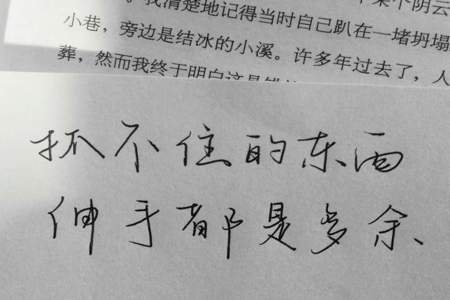 我清楚地记得当时自己趴在一堵坍塌
小巷，旁边是结冰的小溪。许多年过去了，人
葬，然而我终于明白这是
抓不住的东西
伸手都是多余、